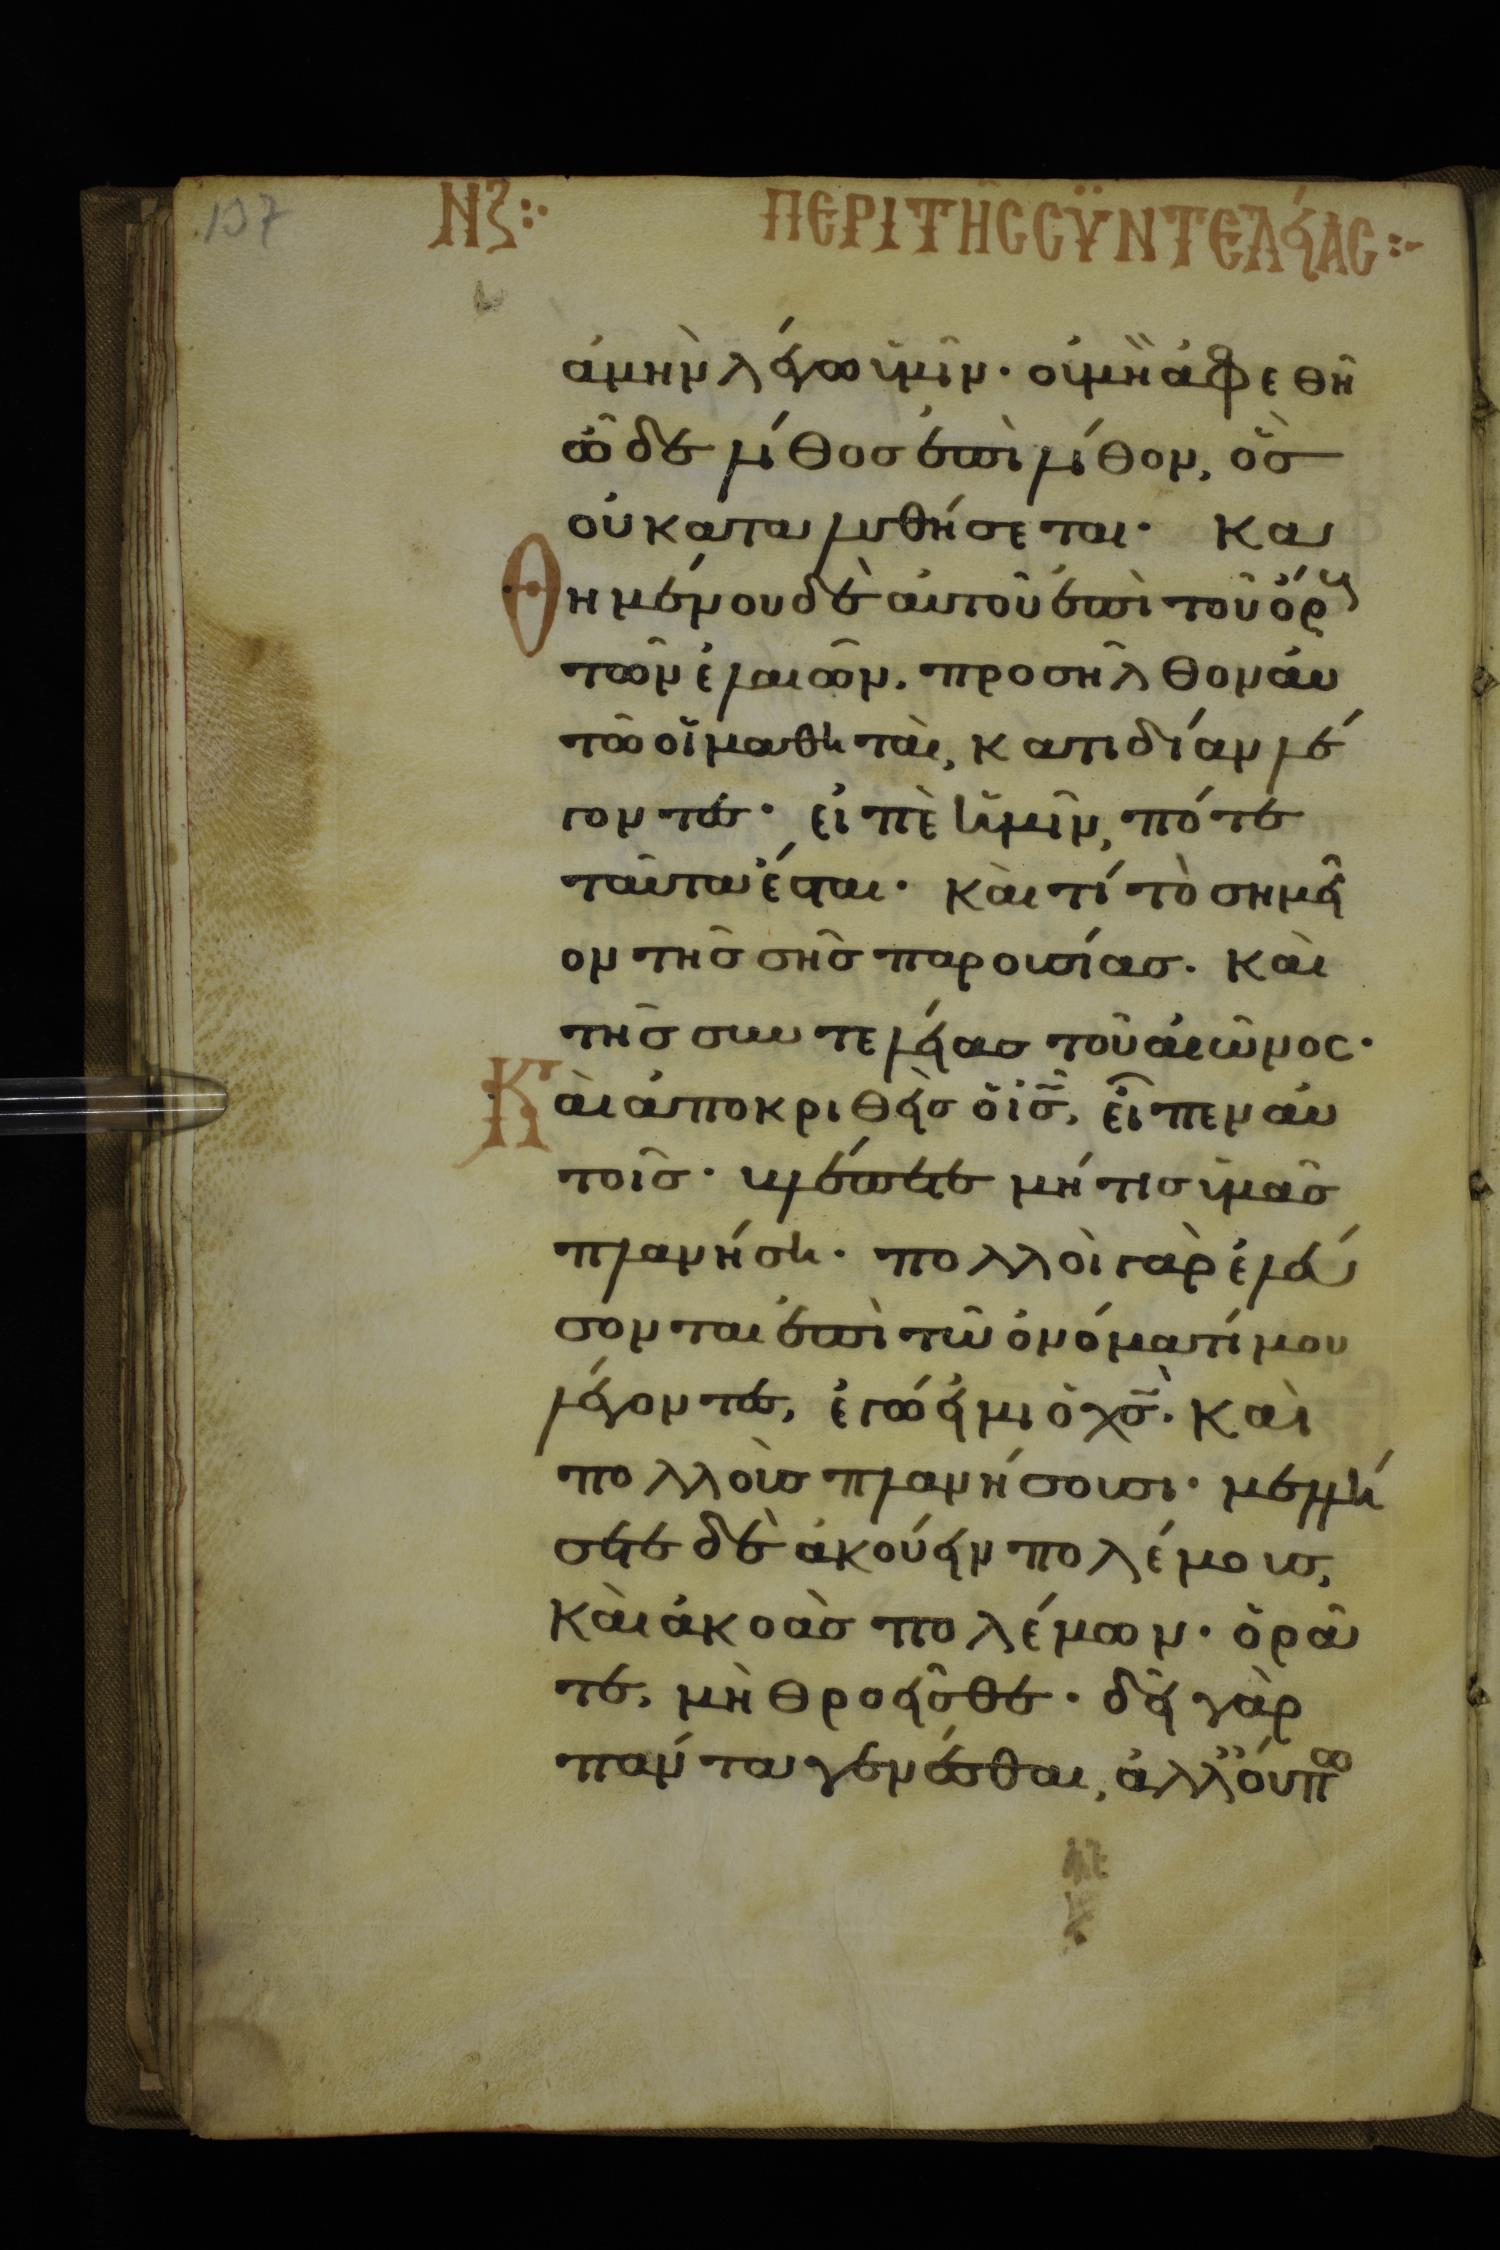 107
ΝΖ:· ΠΕΡΙ ΤΗ͂Ϲ ϹΫΝΤΕΛΕΊΑϹ:-
ἀμὴν λέγω ὑμῖν· οὐ μὴ ἀφεθῆ
ὧδε λίθοσ ἐπὶ λίθον, ὃσ
οὐ καταλυθήσεται· Κα
θημένου δὲ αὐτοῦ ἐπὶ τοῦ ὄρους
τῶν ἐλαιῶν. προσῆλθον αὐ
τῶ οἱ μαθηταὶ, κατιδίαν λέ
γοντεσ· εἰπὲ ἡμῖν, πότε
ταῦτα ἔσται· καὶ τί τὸ σημεῖ
ον τῆσ σῆσ παρουσίασ. καὶ
τῆσ συντελείασ τοῦ αἰῶνοσ·
Καὶ ἀποκριθεὶσ ὁ ἰσ̅, εἶπεν αὐ
τοῖσ· βλέπετε μή τισ ὑμᾶσ
πλανήση· πολλοὶ γὰρ ἐλεύ
σονται ἐπὶ τῶ ὀνόματί μου
λέγοντεσ, ἐγώ εἰμι ὁ χσ̅. καὶ
πολλοὺσ πλανήσουσι· μελλή
σετε δὲ ἀκούειν πολέμουσ,
καὶ ἀκοὰσ πολέμων· ὁρᾶ
τε, μὴ θροεῖσθε· δεῖ γὰρ
πάντα γενέσθαι, ἀλλ οὔπω